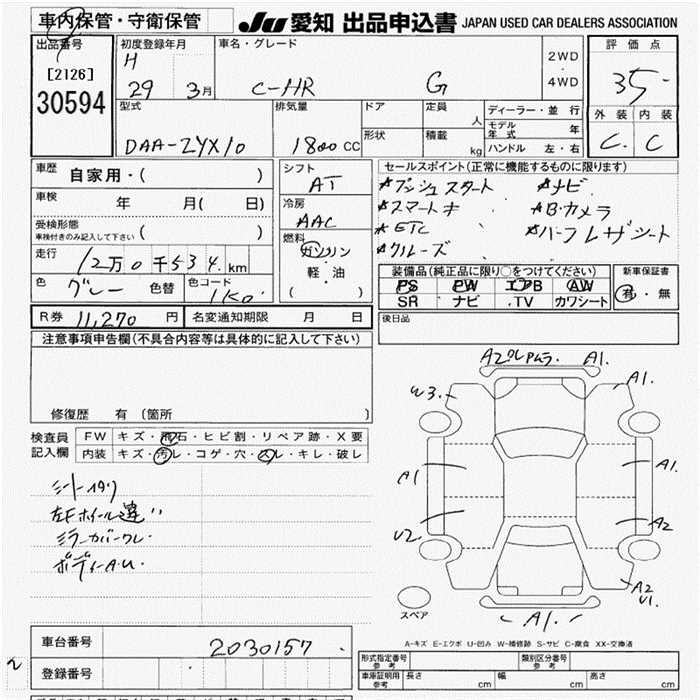 車内保管・守衛保管
JU 愛知 出品申込書 JAPAN USED CAR DEALERS ASSOCIATION
出品番号
[2126]
30594
初度登録年月
H
29 3月
車名・グレード
C-HR G
2WD
・
4WD
評価点
35
外装 内装
C. C
型式
DAA-ZYX10
排気量
1800 CC
ドア
形状
定員
人
積載
kg
ディーラー・並行
モデル年式 年
ハンドル 左・右
車歴
自家用・( )
車検
年 月( 日)
受検形態
車検付きのみ記入して下さい ( )
走行
12万0千534. km
色
グレー 色替
色コード
1K0
シフト
AT
冷房
AAC
燃料
ガソリン
軽・油
( )
セールスポイント(正常に機能するものに限ります)
☆プッシュスタート ☆ナビ
☆スマートキ ☆B・カメラ
☆ETC ☆ハーフレザシート
☆クルーズ
装備品(純正品に限り○をつけてください)
PS PW エアB AW
SR ナビ TV カワシート
新車保証書
有・無
R券 11,270 円
名変通知期限 月 日
後日品
注意事項申告欄(不具合内容等は具体的に記入して下さい)
修復歴 有 (箇所 )
検査員
記入欄
FW キズ・飛石・ヒビ割・リペア跡・X要
内装 キズ・汚レ・コゲ・穴・スレ・キレ・破レ
左Fホイール違い
ミラーカバーワレ
ボディーA.U.
A2 ワレ A1.
W3. A1.
A1 A1
U2. A2
A2
U1.
A1.
スペア
A-キズ E-エクボ U-凹み W-補修跡 S-サビ C-腐食 XX-交換済
車台番号 2030157
登録番号
形式指定番号
参考
類別区分番号
参考
車庫証明用
参考
長さ cm 幅 cm 高さ cm